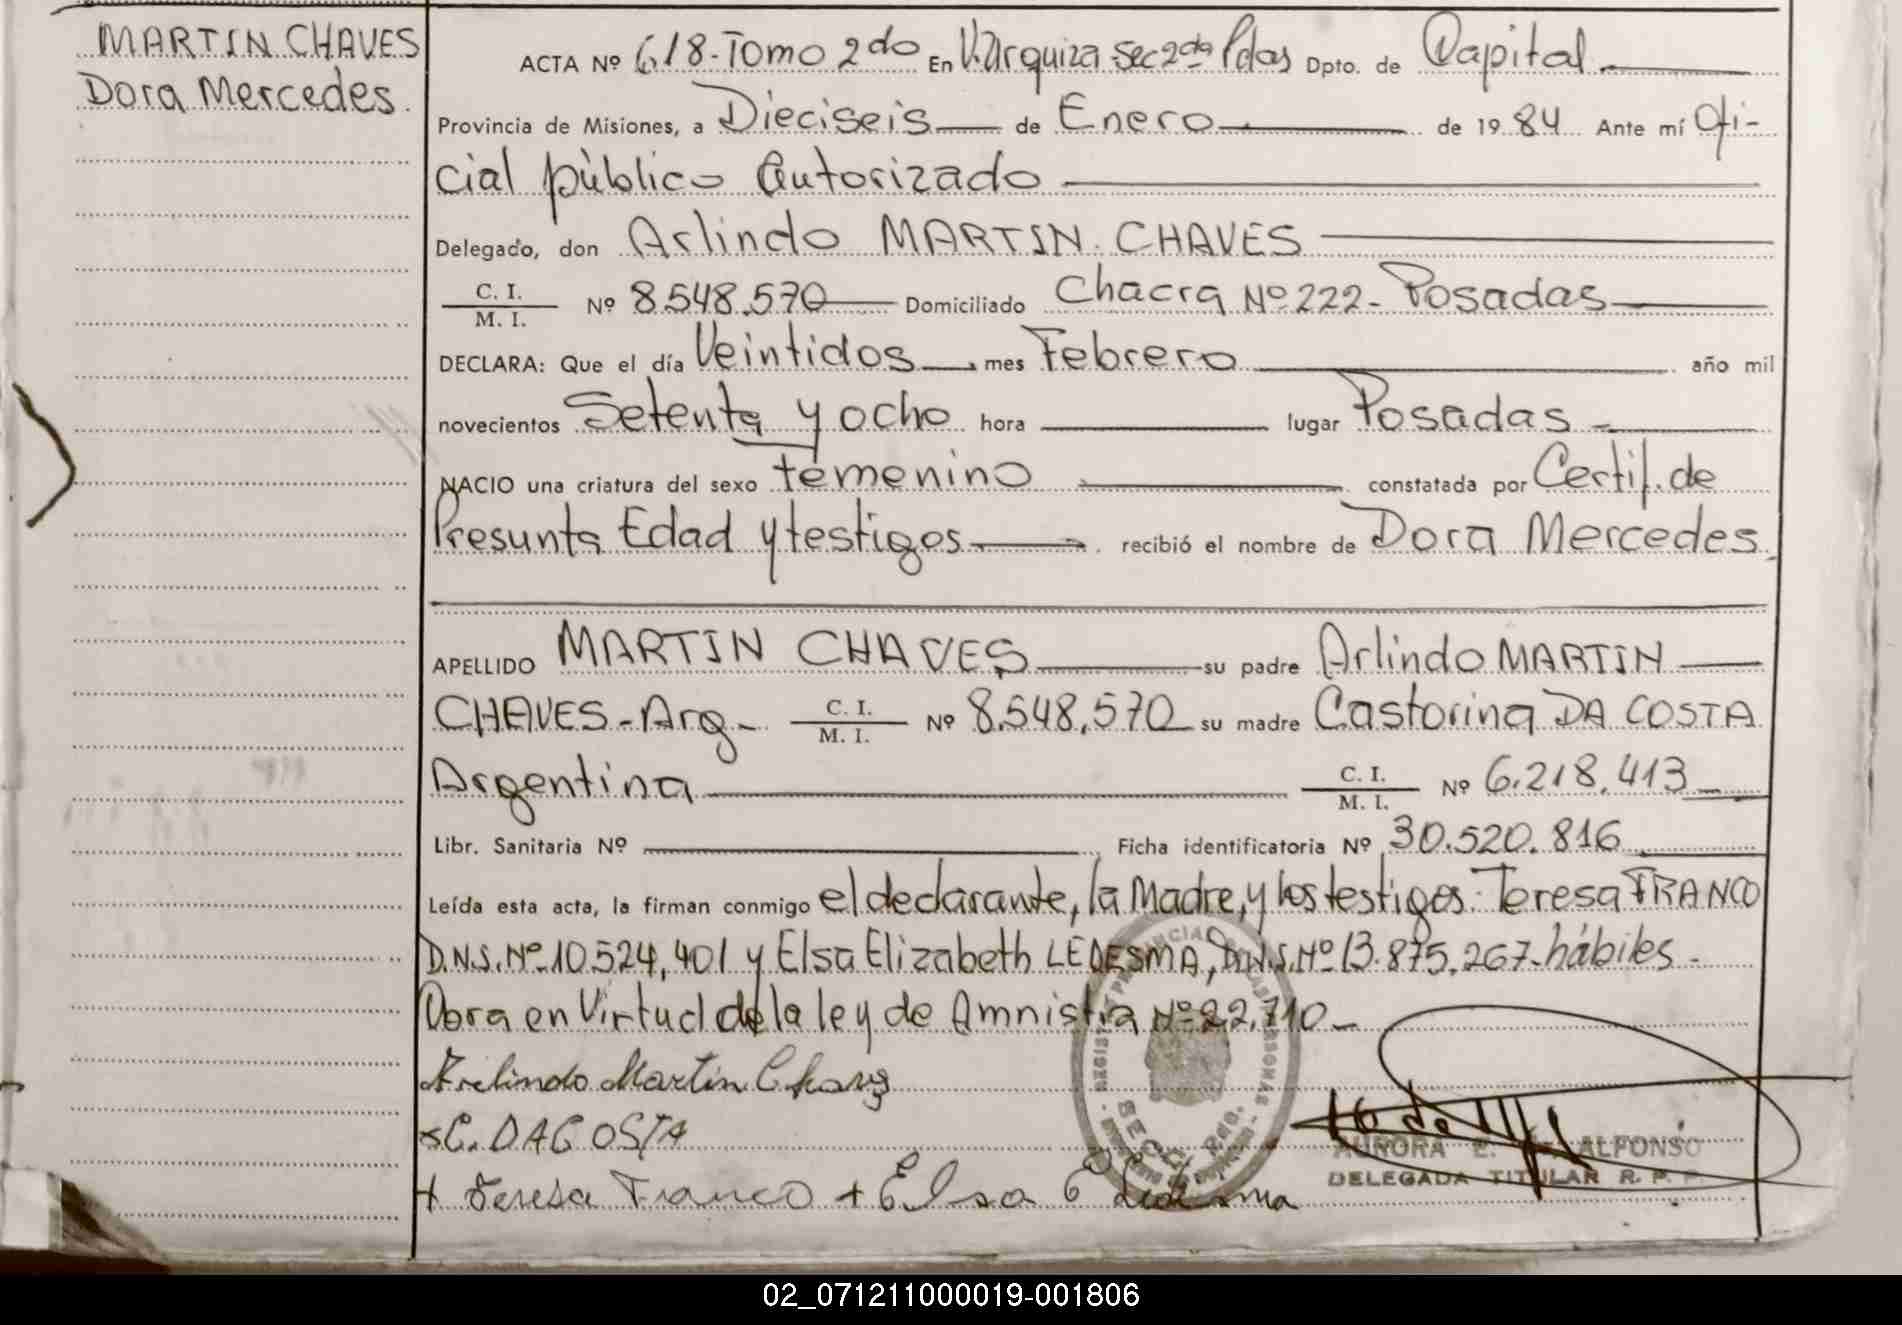 MARTIN CHAVES
Dora Mercedes.
ACTA Nº 618-Tomo 2do En V. Urquiza-Sec 2da Pdas Dpto. de Capital
Provincia de Misiones, a Dieciseis de Enero de 1984 Ante mí Ofi-
cial público Autorizado
Delegado, don Arlindo MARTIN CHAVES
C. I.
M. I. Nº 8.548.570 Domiciliado Chacra Nº 222- Posadas
DECLARA: Que el día Veintidos mes Febrero año mil
novecientos Setenta y ocho hora lugar Posadas
NACIO una criatura del sexo femenino constatada por Certif. de
Presunta Edad y testigos recibió el nombre de Dora Mercedes
APELLIDO MARTIN CHAVES su padre Arlindo MARTIN
CHAVES-Arg- C. I. M. I. Nº 8.548.570 su madre Castorina DA COSTA
Argentina C. I. M. I. Nº 6.218.413
Libr. Sanitaria Nº Ficha identificatoria Nº 30.520.816
Leída esta acta, la firman conmigo el declarante, la Madre, y los testigos: Teresa FRANCO
D.N.I. Nº 10.524.401 y Elsa Elizabeth LEDESMA, D.N.I. Nº 13.875.267-hábiles-
Obra en Virtud de la ley de Amnistia Nº 22.710-
Arlindo Martin Chavs
x C. DACOSTA
+ Teresa Franco + Elsa E Ledesma
AURORA E. ALFONSO
DELEGADA TITULAR R. P. P.
02_071211000019-001806